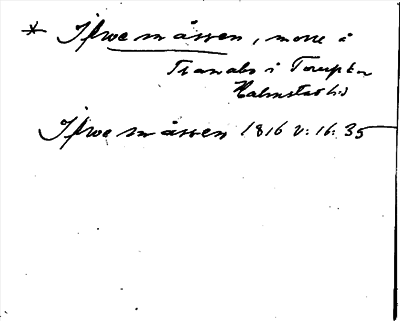 * Iflwe måssen, mosse å
Tranabo i Torup sn
Halmstad hd
Iflwe måssen 1816 v: 16: 35